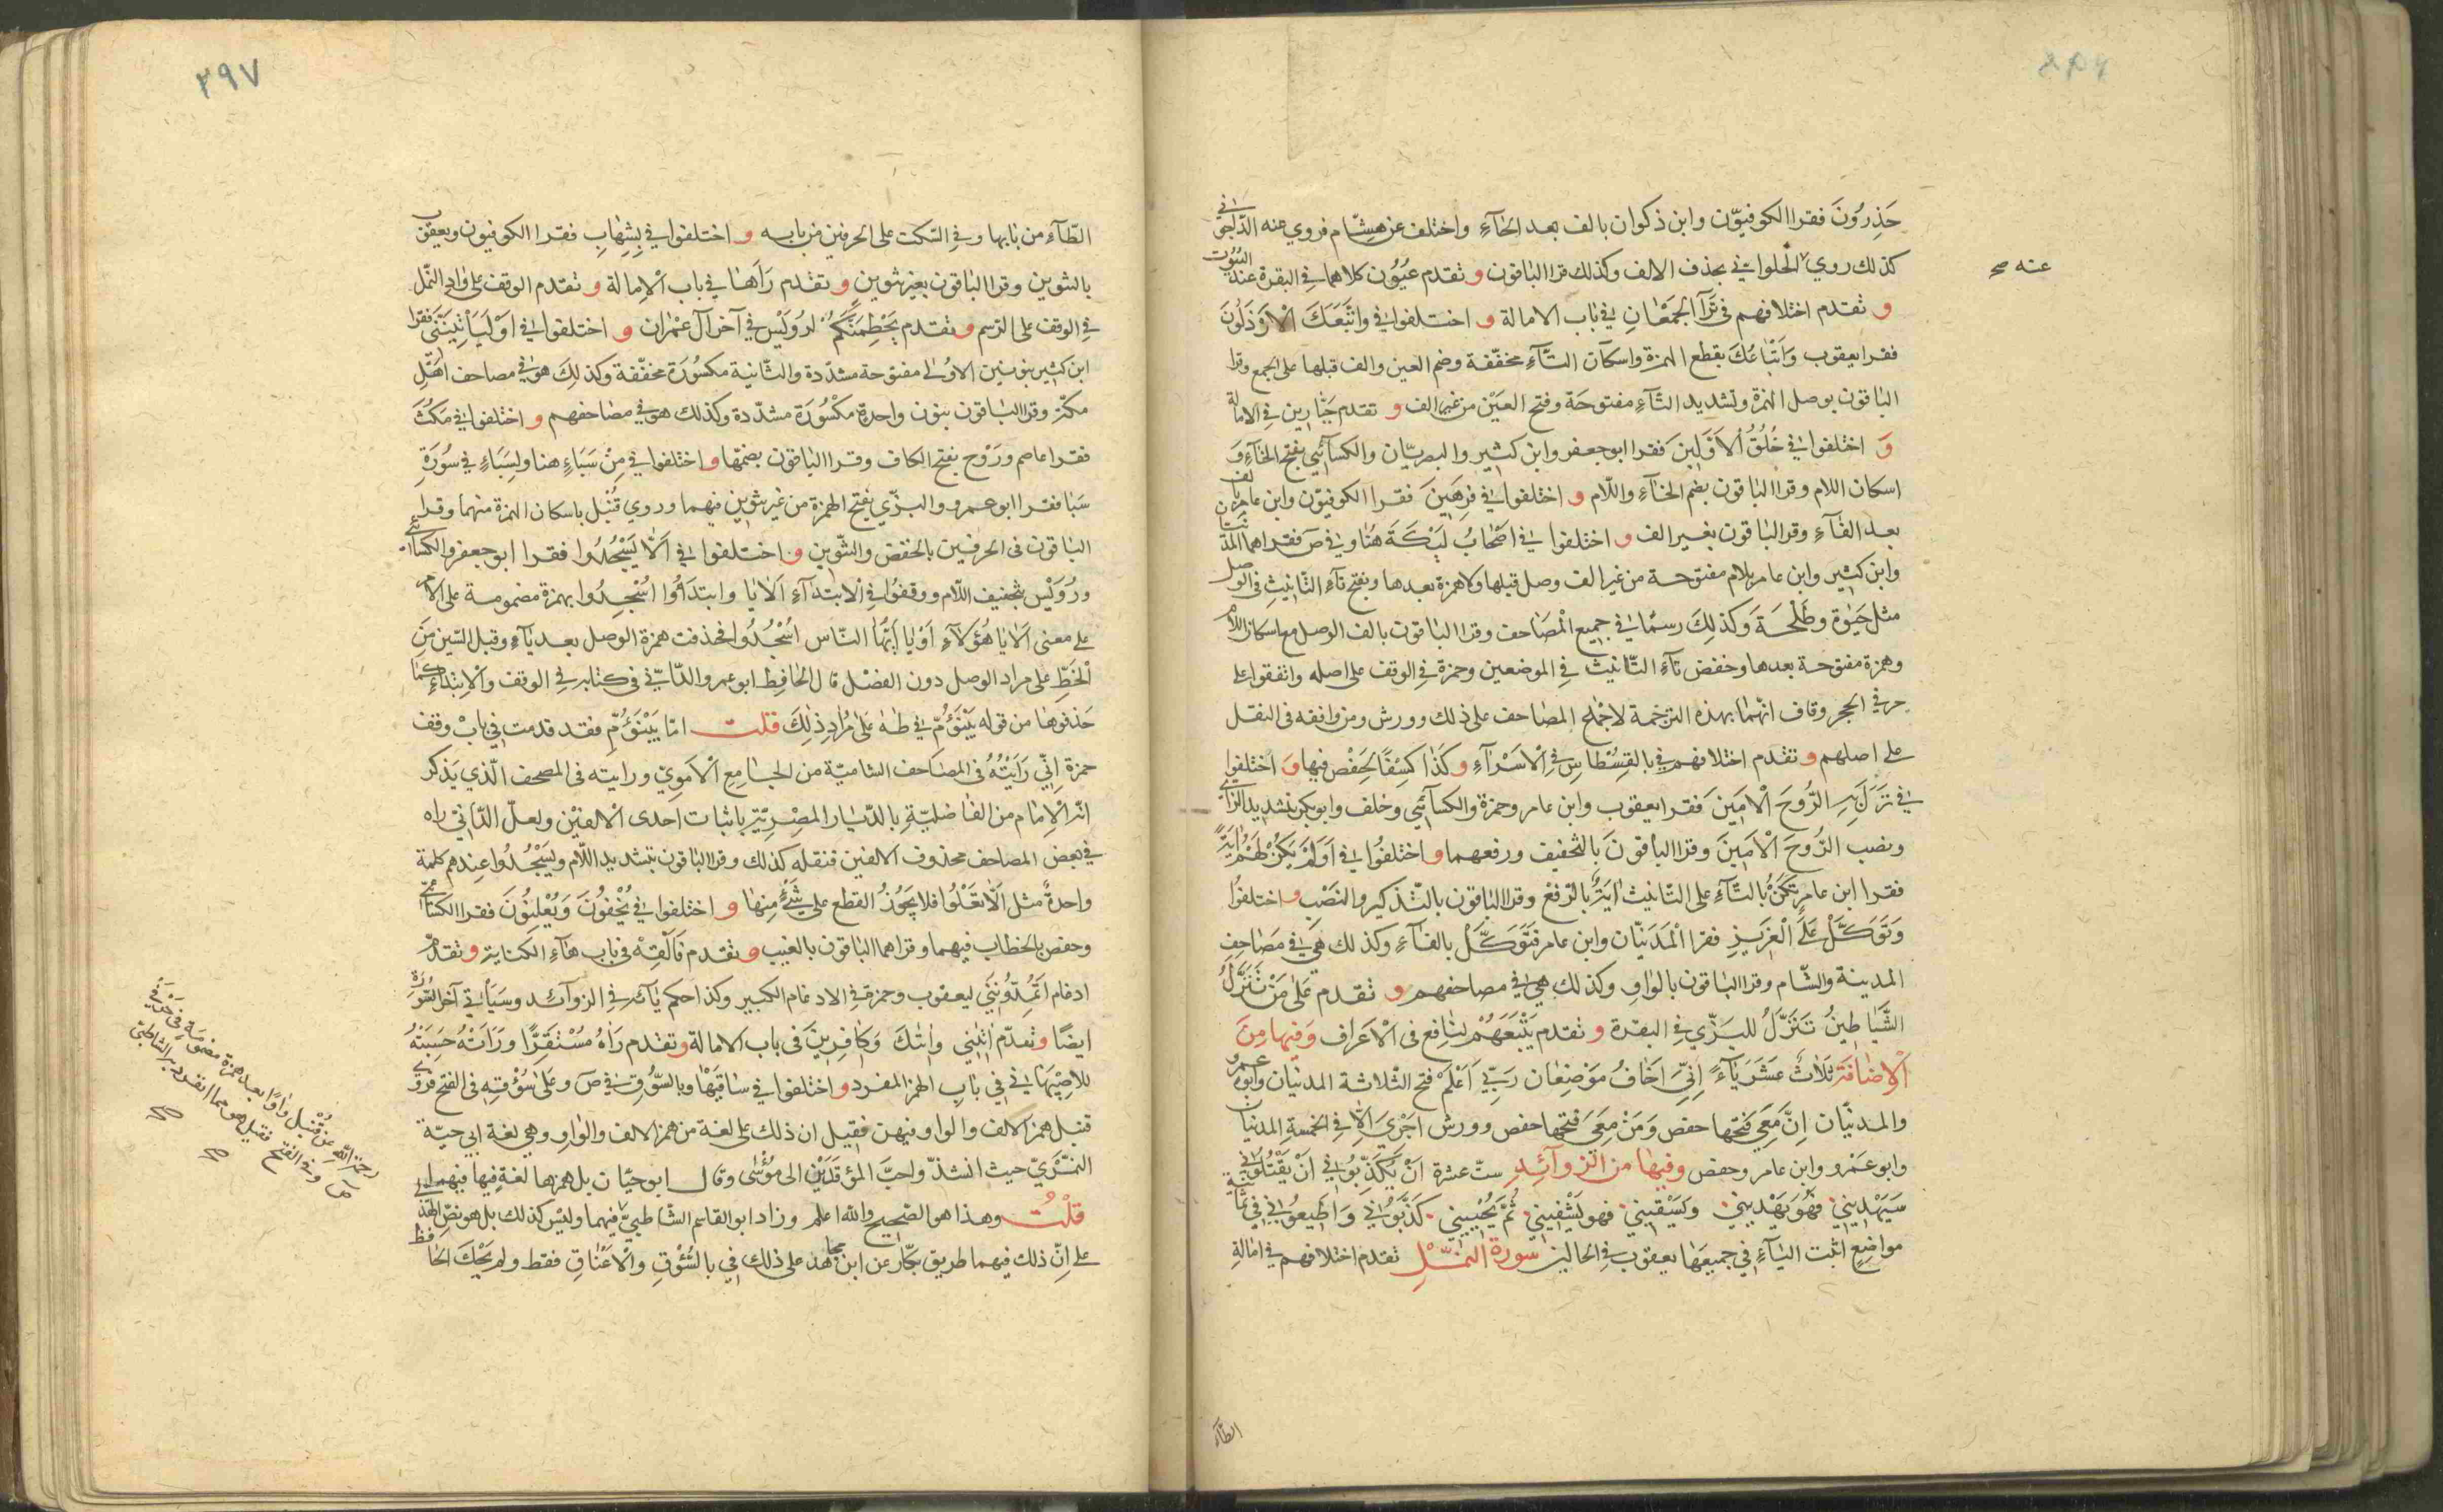 حَذِرُونَ فقرا الكوفيّون وابن ذكوان بالف بعد الحآءِ واختلف عن هشام فروي عنه الدّاجوني
كذلك روي الحلوانيّ بحذف الالف وكذلك قرا الباقون و تقدم عُيُون كلاهما في البقرة عند البيُوت
عنه صح
و تقدم اختلافهم في تَرَآ الجَمْعَانِ في باب الامالة و اختلفوا في وَاتَّبَعَكَ الْاَرْذَلُونَ
فقرا يعقوب وَاَتْبَاعُكَ بقطع الهمزة واسكان التآءِ مخفّفة وضم العين والف قبلها على الجمع وقرا
الباقون بوصل الهمزة وتشديد التآءِ مفتوحَة وفتح العَيْن من غير الف و تقدم جَبّارِين في الامالة
وَ اختلفوا في خُلُقُ الْاَوَّلِينَ فقرا ابوجعفر وابن كثير والبصريّان والكسآئي بفتح الخآءِ وَ
اسكان اللام وقرا الباقون بضم الخآءِ واللّام و اختلفوا في فَرِهِينَ فقرا الكوفيّون وابن عامر بالف
بعد الفآءِ وقرا الباقون بغير الف و اختلفوا في اَصْحَابُ لَيْكَةَ هُنا وفي صۤ فقراهما المدنيّان
وابن كثير وابن عامر بلام مفتوحة من غير الف وصل قبلها ولا همزة بعدها وبفتح تآءِ التّانيثِ في الوصل
مثل حَيٰوة وطَلْحَةَ وَكذلِكَ رسمًا في جميع الْمصَاحف وقرا الباقون بالف الوصل مع اسكان اللام
وهمزة مفتوحة بعدها وخفض تآءِ التّانيث في الموضعين وحمزة في الوقف على اصله واتفقوا على
حرفي الحجر وقاف انّهما بهذه الترجمة لاجماع المصاحف على ذلك وورش ومن وافقه في النقل
على اصلهم و تقدم اختلافهم في بالقِسْطاسِ في الْاَسْرَآءِ و كَذا كِسَفًا لِحَفْصٍ فيها وَ اختلفوا
في نَزَلَ بِهِ الرُّوحُ الْاَمِينُ فقرا يعقوب وابن عامر وحمزة والكسآئي وخلف وابوبكر بتشديد الزاي
ونصب الرُّوحَ الْاَمِينَ وقرا الباقونَ بالتخفيف ورفعهما و اختلفُوا في اَوَلَمْ يَكُنْ لَهُمْ اٰيَةً
فقرا ابن عامر تَكُنْ بالتّآءِ على التّانيث اٰيَةٌ بالرّفعْ وقرا الباقون بالتّذكير والنَصْب و اختلفُوا
وَتَوَكَّلْ عَلَى الْعَزِيزِ فقرا الْمَدَنيّان وابن عامر فَتَوَكَّلْ بالفآءِ وكذلك هي في مَصَاحِفِ
المدينة والشّام وقرا الباقون بالواوِ وكذلك هي في مصاحفهم و تقدم عَلىٰ مَنْ تَنَزَّلُ
الشَّيَاطِينُ تَنَزَّلُ للبَزِّي في البقرة و تقدم يَتْبَعُهُمْ لِنَافِع في الْاَعراف وَفِيهَا مِنَ
الْاِضَافَةِ ثَلاثَ عَشَرَ يَآءً اِنِّيَ اَخَافُ مَوْضِعَان رَبِّيَ اَعْلَمْ فتح الثّلاثة المدنيان وابو عمرو
والمدنيّان اِنَّ مَعِيَ فَتَحها حفص وَمَنْ مَعِيَ فَتحها حفص وورش اَجْرِيَ اِلّا في الخمسةِ المدنيان
وابوعَمْرو وابن عامر وحفص وفيها من الزوآئِدِ ستّ عشرة اَنْ يُكَذِّبُوني اَنْ يَقْتُلُوني
سَيَهْدِيني فَهُوَ يَهْدِيني وَيَسْقِيني فهو يَشْفِيني ثُمَّ يُحْيِيني كَذَّبُوني وَاَطِيعُوني في ثمانية
مواضع اثبت اليآءِ في جميعهَا يعقوب في الحالين سورة النمّلِ تقدم اختلافهم في امَالة
الطآء
٢٩٧
الطّآءِ من بابها وفي السّكت على الحرفين من بابه و اختلفوا في بِشِهَابِ فقرا الكوفيون ويعقوب
بالتنوين وقرا الباقون بغير تنوين و تقدم رَاَهَا في باب الْاِمالة و تقدم الوقف على وَادِ النّمل
في الوقف على الرسم و تقدم يَحْطِمَنَّكُمْ لرُوَيْس في آخر آل عمران و اختلفوا في اَوْ لَيَأْتِيَنّي فقرا
ابن كثير بنونين الاولى مفتوحة مشدّدة والثّانية مكسُورَة مخفّفة وكذلك هو في مصاحف اَهْلِ
مكّة وقرا الباقون بنون واحدة مكْسُورَة مشدّدة وكذلك هو في مصَاحفهم و اختلفوا في مَكُثَ
فقرا عاصم ورَوْح بفتح الكاف وقرا الباقون بضمّها و اختلفوا في مِنْ سَبَاءٍ هنا ولِسَبَاءٍ في سُورَة
سَبا فقرا ابوعمرو والبزّي بفتح الهمزة من غير تنوين فيهما وروي قُنْبُل باسكان الهمزة منهما وقرا
الباقون في الحرفين بالخفض والتّنوين و اختلفوا في اَلّا يَسْجُدُوا فقرا ابوجعفر والكسآئي
ورُوَيْس بتخفيف اللّام ووقفُوا في الْابتدآءِ اَلَا يَا وابتدَؤُا اُسْجُدُوا بهمزة مضمومة على الامر
على معنى اَلَا يَا هٰؤُلآءِ اَوْ يَا اَيُّهَا النّاس اُسْجُدُوا فحذفت همزة الوصل بعد يآءِ وقبل السّين مِنَ
الْخَطِّ على مراد الوصل دون الفصْل قال الحَافِظ ابوعمرو الدّانيّ في كتابه في الوقف وَالْابتدَآءِ كما
حَذفوها من قوله يَبْنَؤُمَّ في طٰهٰ عَلىٰ مُرادِ ذٰلِكَ قلت امّا يَبْنَؤُمِّ فقد قدمت في بابْ وقف
حمزة اِنّي رَاَيْتُهُ في المصَاحف الشاميّة من الجَامِع الْاُمَوِيّ ورايته في المصحف الّذي يَذكر
انّه الْاِمَام من الفاضليّةِ بالدّيَار المصْرِيّة باثبات احدى الْالفَيْن ولعلّ الدّانيّ راه
في بعض المصاحف محذوف الالفين فنقله كذلك وقرا الباقون بتشديد اللّام ويَسْجُدُوا عِندهم كلمة
واحدةٌ مثل اَلّا تَعْلُوا فلا يَجُوزُ القطع على شَيْءٍ مِنها و اختلفوا في يُخْفُونَ وَيُعْلِنُونَ فقرا الكسآئي
وحفص بالخطاب فيهما وقراهما الباقون بالغيب و تقدم فَاَلْقِهْ في باب هآءِ الكناية و تقدم
ادغام اَتُمِدُّونَنِي ليعقوب وحمزة في الادغام الكبير وكذا حكم يَائه في الزوآئد وسَيَأتي آخر السُّورَة
ايضًا و تقدّم اٰتٰنِي واٰتٰكَ وَكافِرِينَ في باب الامالة و تقدم رَاٰهُ مُسْتَقِرًّا ورَاَتْهُ حَسِبَتْهُ
للاِصْبهَاني في بَابِ الهمز المفرد و اختلفوا في سَاقَيْهَا وبالسُّوقِ في صۤ وعَلىٰ سُوقِهِ في الفتح فروي
قنبل همز الالف والواو فيهن فقيل ان ذلك على لغة من همز الالف والواوِ وهي لغة ابي حيّة
النمَيْريّ حيث انشد واحبّ المؤقدَيْنِ الى مؤْسٰى وقال ابوحيّان بل همزها لغة فيها فيهما
قلْتُ وهذا هو الصّحيح والله اعلم وزاد ابوالقاسم الشّاطبيّ فيهما وليس كذلك بل هو نصّ الهذلي
على انّ ذلك فيهما طريق بكّار عن ابن مجاهد على ذلك في بالسُّؤْقِ والْاَعْنَاقِ فقط ولم يَحْكَ الحافظ
رحمة الله عن قُنْبل واوًا بعد همزة مضمومة في حرفي
صۤ وفي الفتح فقيل هو مما انفرد به الشاطبي
صح